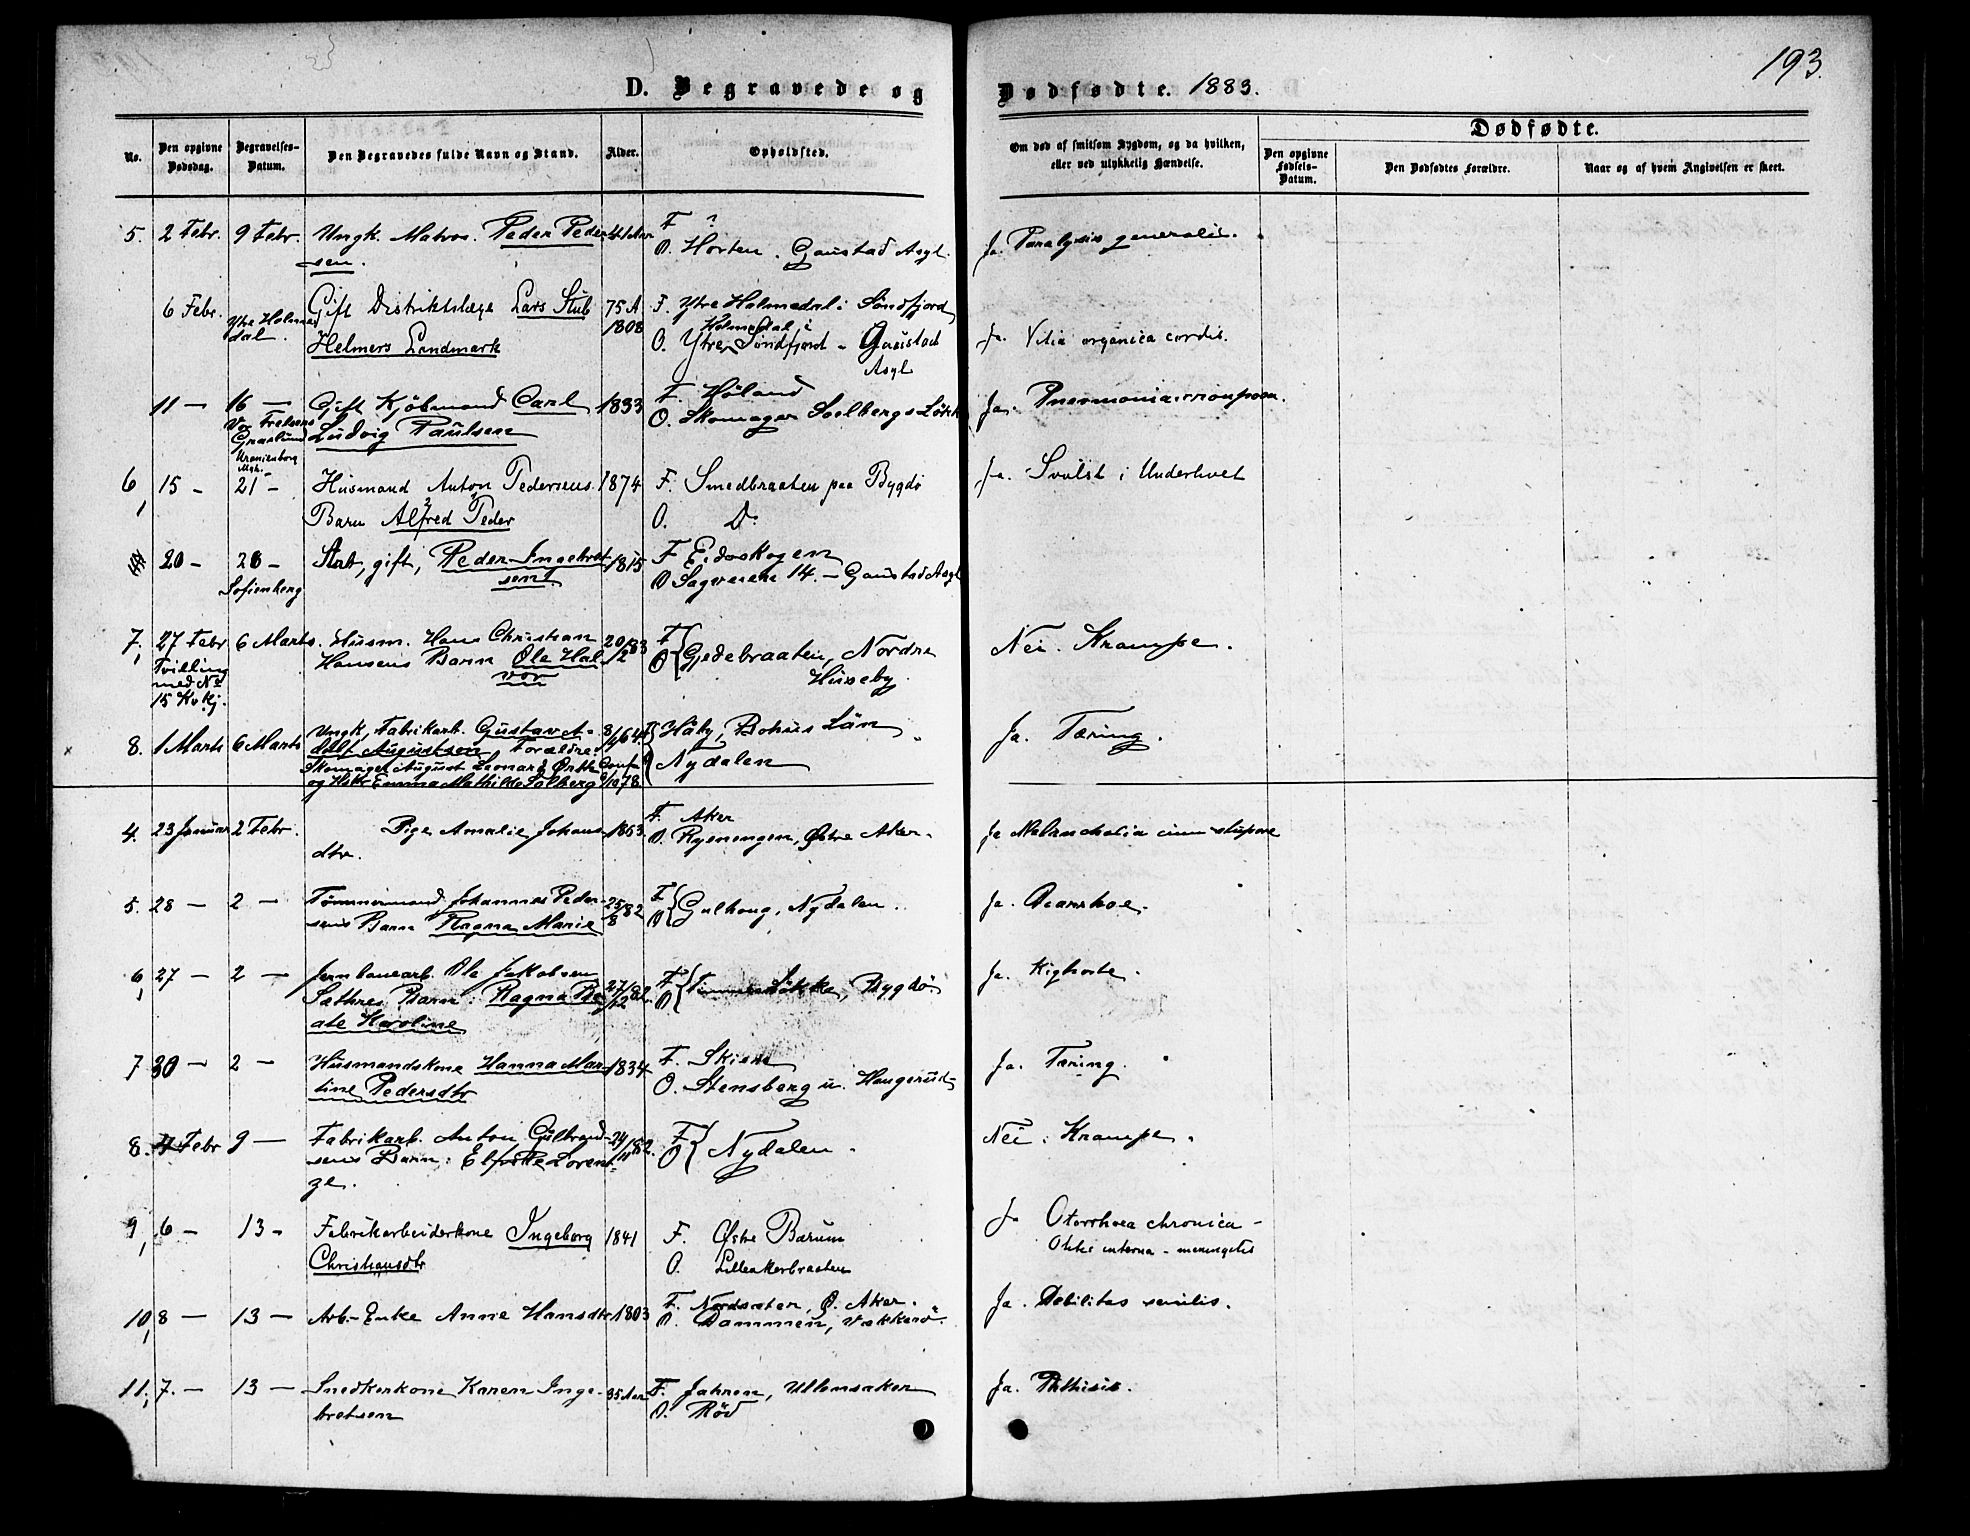 193.
D. Begravede og Dødfødte. 1883.
No.
Den opgivne Dødsdag.
Begravelses-Datum.
Den Begravedes fulde Navn og Stand.
Alder.
Opholdsted.
Om død af smitsom Sygdom, og da hvilken, eller ved ulykkelig Hændelse.
Dødfødte.
Den opgivne Fødsels-Datum.
Den Dødfødtes Forældre.
Naar og af hvem Angivelsen er skeet.
5. 2 Febr. 9 Febr. Ungk. Matros. Peder Peder 41 Aar F ? Ja. Paralysis generalis.
sen. O. Horten. Gaustad Asyl.
6 Febr. Ytre Holmedal. Gift Distriktslæge Lars Stub 75 A 1808 F. Ytre Holmedal i Søndfjord
Helmers Landmark O. Ytre Holmedal i Søndfjord - Gaustad Asyl Ja. Vitia organica cordis.
11 - 16 - Gift Kjøbmand Carl 1833 F. Høland Ja. Pneumonia
Vor Frelsers Gravlund Ludvig Paulsen O. Skomager Solbergs Løkk
Uranienborg Mgh.
6, 15 - 21 - Husmand Anton Pedersens 1874 F. Smedbraaten paa Bygdø Ja. Svulst i Underlivet
Barn Alfred Peder O. Do
20 - 26 - gift, Peder Ingebret 1815 F Eidskogen
Sofienberg sen O Sagveien 14. - Gaustad Asyl
7, 27 Febr 6 Marts. Husm. Hans Christian 20/12 83 F Nei. Krampe.
Tvilling med No 15 Kvkj. Hansens Barn Ole Hal O Gjedebraaten, Nordre
vor Huseby
8. 1 Marts 6 Marts Ungk. Fabrikarb. Gustav A- 64. F Håby, Bohus Län Ja. Tæring.
dolf Augustson, Forældre: O Nydalen
Skomager August Leonard
og Hstr Emma Mathilde Solberg 78
4. 23 Januar 2 Febr. Pige Amalie Johans 1853 F. Aker Ja Melancholia cum stupore
dtr. O. Ryenengen, Østre Aker.
5. 28 - 2 - Tømmermand Johannes Peder- 25/8 82 F Ja. Diarrhoe.
sens Barn Ragna Marie O Gulhaug, Nydalen.
6, 27 - 2 - Jernbanearb. Ole Jakobsen 27/12 82. F Ja. Kighoste.
Sæthres Barn: Ragna Be O løkka, Bygdø
ate Karoline
7 30 - 2 - Husmandskone Hanna Mar 1834 F. Skien Ja. Tæring.
tine Pedersdtr O. Stensberg u. Haugerud
8. 4 Febr 9 - Fabrikarb. Anton Gulbrand- 24/11 82. F Nei. Krampe.
sens Barn: Elfride Loren- O Nydalen.
ze.
9, 6 - 13 - Fabrikarbeiderkone Ingeborg 1841 F. Østre Bærum Ja Otorrhoea chronica -
Christiansdtr O. Lilleakerbraaten Otitis interna - meningitis
10, 8 - 13 - Arb.-Enke Anne Hansdtr 1803 F. Nordsæter, Ø. Aker. Ja. Debilitas senilis.
O. Dammen, Vækkerø.
11, 7. - 13 - Snedkerkone Karen Inge- 35 Aar F. Jahren, Ullensaker Ja. Phthisis.
bretsen O. Rød